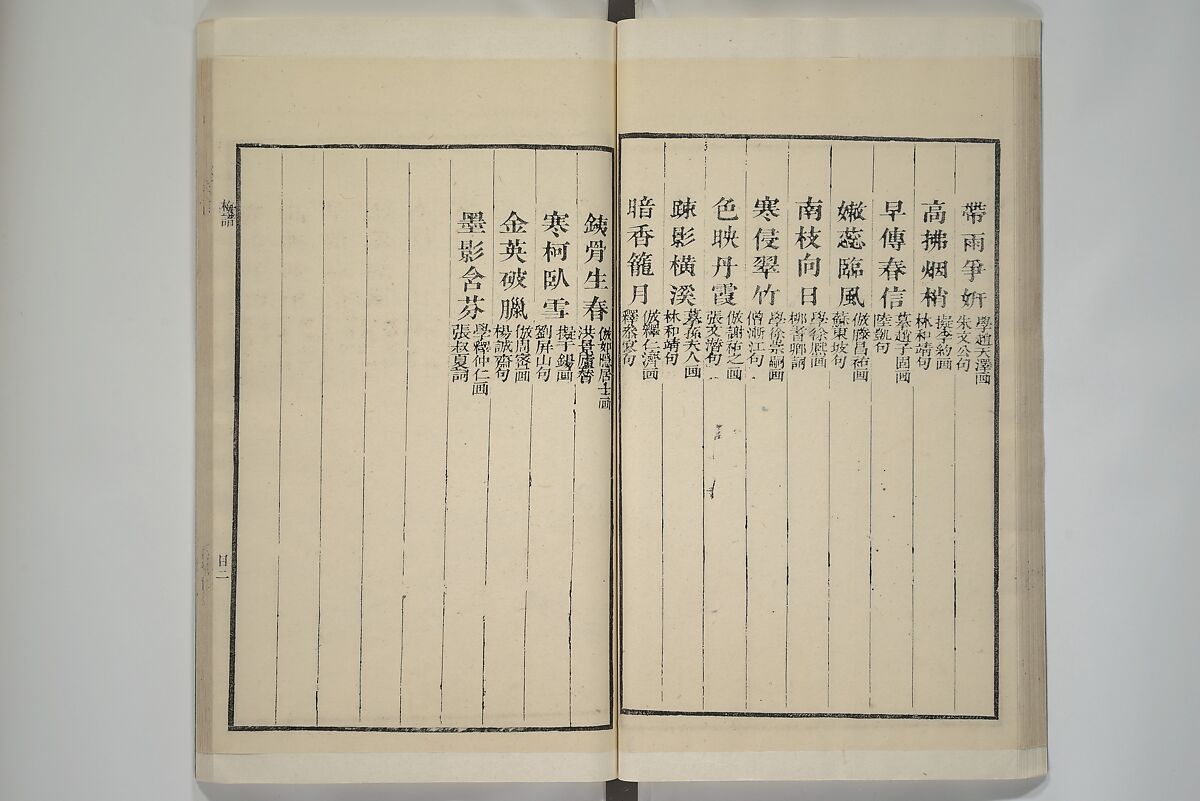 帶雨爭妍
學趙天澤画
朱文公句
高拂烟梢
擬李約画
林和靖句
早傳春信
摹趙子固画
陸凱句
嫩蕊臨風
倣滕昌祐画
蘇東坡句
南枝向日
學徐熙画
柳耆卿詞
寒侵翠竹
學徐崇嗣画
僧漸江句
色映丹霞
倣謝祐之画
張文潛句
踈影橫溪
摹孫夫人画
林和靖句
暗香籠月
倣釋仁濟画
釋參寥句
鉄骨生春
倣如隱居士画
洪景廬替
寒柯臥雪
擬于錫画
劉屏山句
金英破臘
倣周密画
楊誠齋句
墨影含芬
學釋仲仁画
張叔夏詞
梅譜
目二